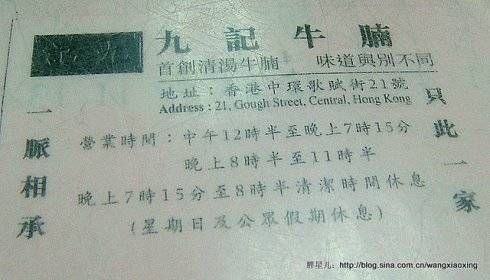 九記牛腩
首創清湯牛腩 味道與別不同
地址：香港中環歌賦街21號
Address : 21, Gough Street, Central, Hong Kong
一脈相承
只此一家
營業時間：中午12時半至晚上7時15分
晚上8時半至11時半
晚上7時15分至8時半清潔時間休息
(星期日及公眾假期休息)
胖星儿：http://blog.sina.com.cn/wangxiaoxing